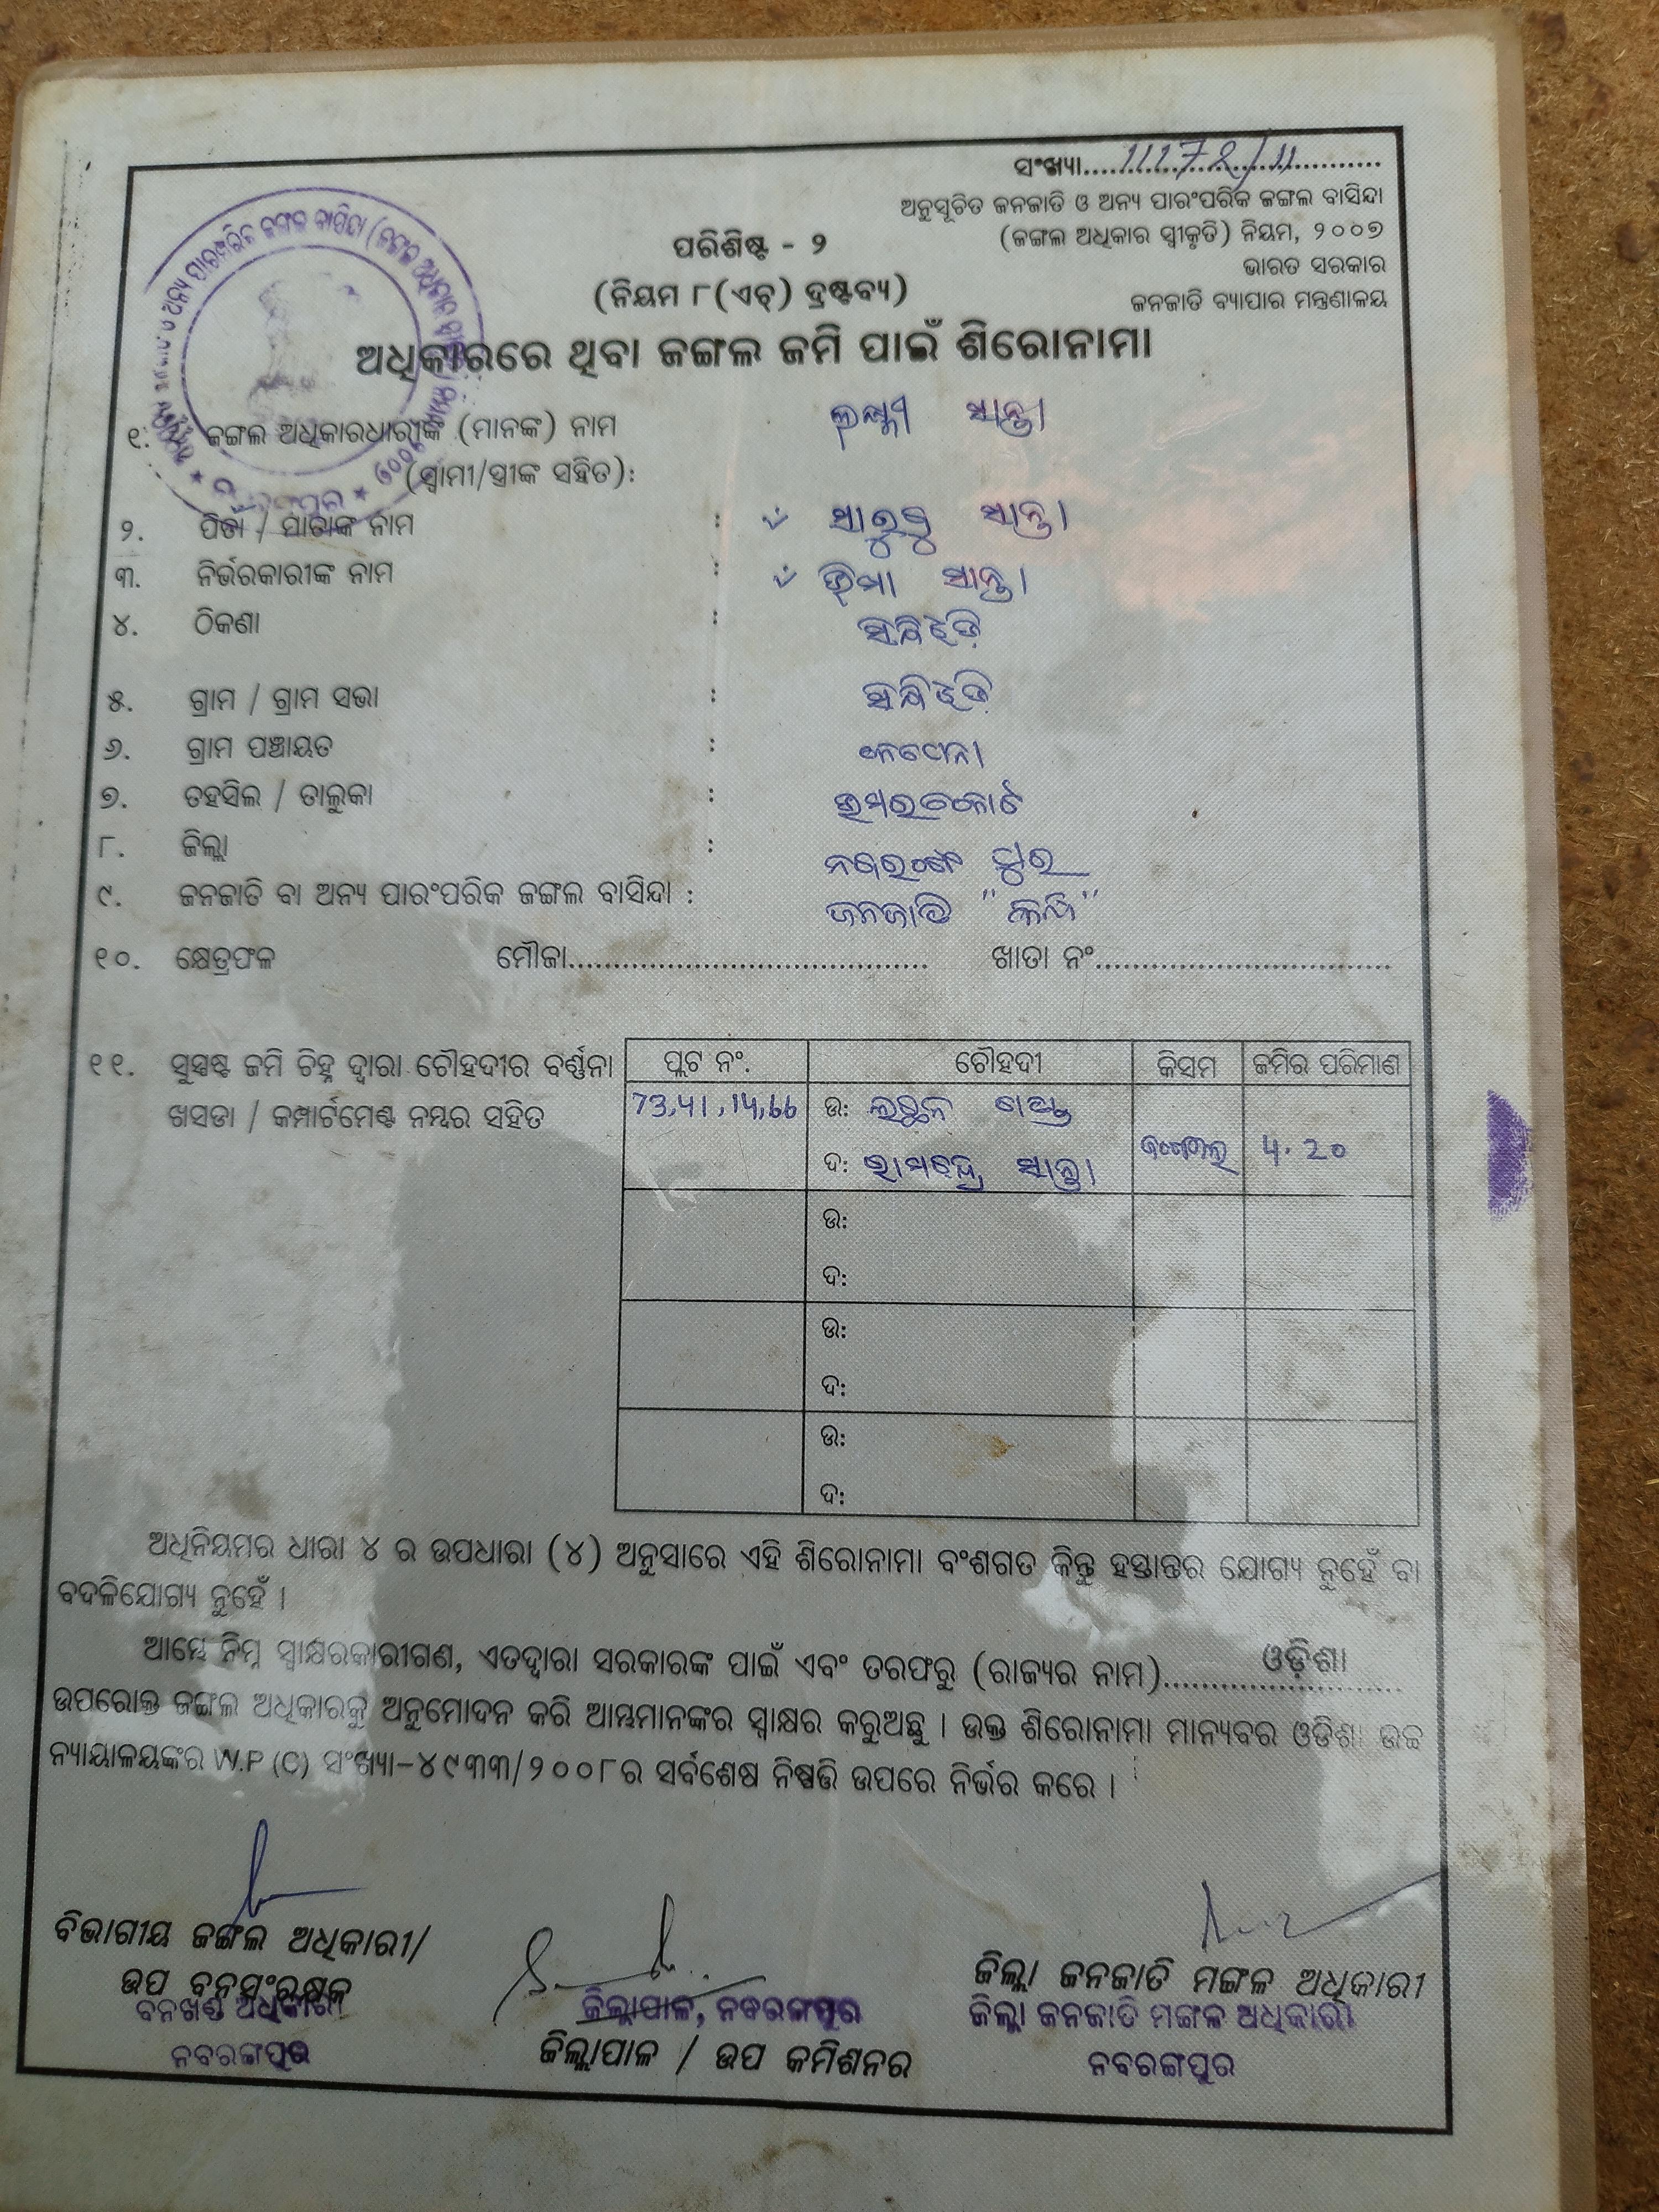 ସଂଖ୍ୟା 11172/11
ଅନୁସୂଚିତ ଜନଜାତି ଓ ଅନ୍ୟ ପାରଂପରିକ ଜଙ୍ଗଲ ବାସିନ୍ଦା
(ଜଙ୍ଗଲ ଅଧିକାର ସ୍ୱୀକୃତି) ନିୟମ, ୨୦୦୭
ଭାରତ ସରକାର
ଜନଜାତି ବ୍ୟାପାର ମନ୍ତ୍ରଣାଳୟ
ପରିଶିଷ୍ଟ - ୨
(ନିୟମ ୮(ଏଚ୍) ଦ୍ରଷ୍ଟବ୍ୟ)
ଅଧିକାରରେ ଥିବା ଜଙ୍ଗଲ ଜମି ପାଇଁ ଶିରୋନାମା
୧. ଜଙ୍ଗଲ ଅଧିକାରଧାରୀଙ୍କ (ମାନଙ୍କ) ନାମ ଲକ୍ଷ୍ମୀ ସାନ୍ତା
(ସ୍ୱାମୀ/ସ୍ତ୍ରୀଙ୍କ ସହିତ):
୨. ପିତା / ମାତାଙ୍କ ନାମ : ସାନ୍ତା
୩. ନିର୍ଭରକାରୀଙ୍କ ନାମ : ସାନ୍ତା
୪. ଠିକଣା :
୫. ଗ୍ରାମ / ଗ୍ରାମ ସଭା :
୬. ଗ୍ରାମ ପଞ୍ଚାୟତ :
୭. ତହସିଲ / ତାଲୁକା : ଉମରକୋଟ
୮. ଜିଲ୍ଲା : ନବରଂଗ ପୁର
୯. ଜନଜାତି ବା ଅନ୍ୟ ପାରଂପରିକ ଜଙ୍ଗଲ ବାସିନ୍ଦା : ଜନଜାତି
୧୦. କ୍ଷେତ୍ରଫଳ ମୌଜା ଖାତା ନଂ
୧୧. ସୁସ୍ପଷ୍ଟ ଜମି ଚିହ୍ନ ଦ୍ୱାରା ଚୌହଦୀର ବର୍ଣ୍ଣନା
ଖସଡା / କମ୍ପାର୍ଟମେଣ୍ଟ ନମ୍ବର ସହିତ
ପ୍ଲଟ ନଂ. ଚୌହଦୀ କିସମ ଜମିର ପରିମାଣ
ଉ:
ଦ: ସାନ୍ତା ଜଂଗଲ 4.20
ଉ:
ଦ:
ଉ:
ଦ:
ଉ:
ଦ:
ଅଧିନିୟମର ଧାରା ୪ ର ଉପଧାରା (୪) ଅନୁସାରେ ଏହି ଶିରୋନାମା ବଂଶଗତ କିନ୍ତୁ ହସ୍ତାନ୍ତର ଯୋଗ୍ୟ ନୁହେଁ ବା
ବଦଳିଯୋଗ୍ୟ ନୁହେଁ ।
ଆମ୍ଭେ ନିମ୍ନ ସ୍ୱାକ୍ଷରକାରୀଗଣ, ଏତଦ୍ୱାରା ସରକାରଙ୍କ ପାଇଁ ଏବଂ ତରଫରୁ (ରାଜ୍ୟର ନାମ) ଓଡ଼ିଶା
ଉପରୋକ୍ତ ଜଙ୍ଗଲ ଅଧିକାରକୁ ଅନୁମୋଦନ କରି ଆମ୍ଭମାନଙ୍କର ସ୍ୱାକ୍ଷର କରୁଅଛୁ । ଉକ୍ତ ଶିରୋନାମା ମାନ୍ୟବର ଓଡିଶା ଉଚ୍ଚ
ନ୍ୟାୟାଳୟଙ୍କର W.P (C) ସଂଖ୍ୟା-୪୯୩୩/୨୦୦୮ର ସର୍ବଶେଷ ନିଷ୍ପତ୍ତି ଉପରେ ନିର୍ଭର କରେ ।
ବିଭାଗୀୟ ଜଙ୍ଗଲ ଅଧିକାରୀ/
ଉପ ବନସଂରକ୍ଷକ
ବନଖଣ୍ଡ ଅଧିକାରୀ
ନବରଙ୍ଗପୁର
ଜିଲ୍ଲାପାଳ, ନବରଙ୍ଗପୁର
ଜିଲ୍ଲାପାଳ / ଉପ କମିଶନର
ଜିଲ୍ଲା ଜନଜାତି ମଙ୍ଗଳ ଅଧିକାରୀ
ଜିଲ୍ଲା ଜନଜାତି ମଙ୍ଗଳ ଅଧିକାରୀ
ନବରଙ୍ଗପୁର